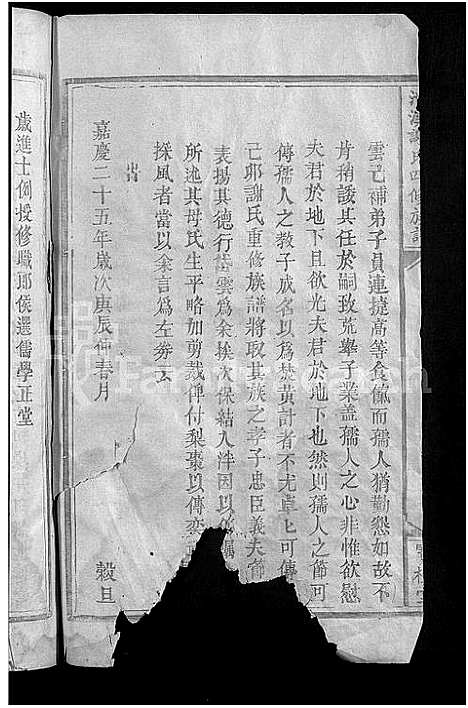 雲已補弟子員連捷高等食餼而孺人猶勤懇如故不
肯稍諉其任於嗣致荒舉子業蓋孺人之心非惟欲慰
夫君於地下且欲光夫君於地下也然則孺人之節可
傳孺人之教子成名以為焚黃計者不尤卓卓可傳
己卯謝氏重修族譜將取其族之孝子忠臣義夫節
表揚其德行雲為余挨次保結入泮因以
所述其母氏生平略加剪裁俾付梨棗以傳
採風者當以余言為左券云
嘉慶二十五年歲次庚辰仲春月 穀旦
歲進士例授修職郎侯選儒學正堂
FamilySearch